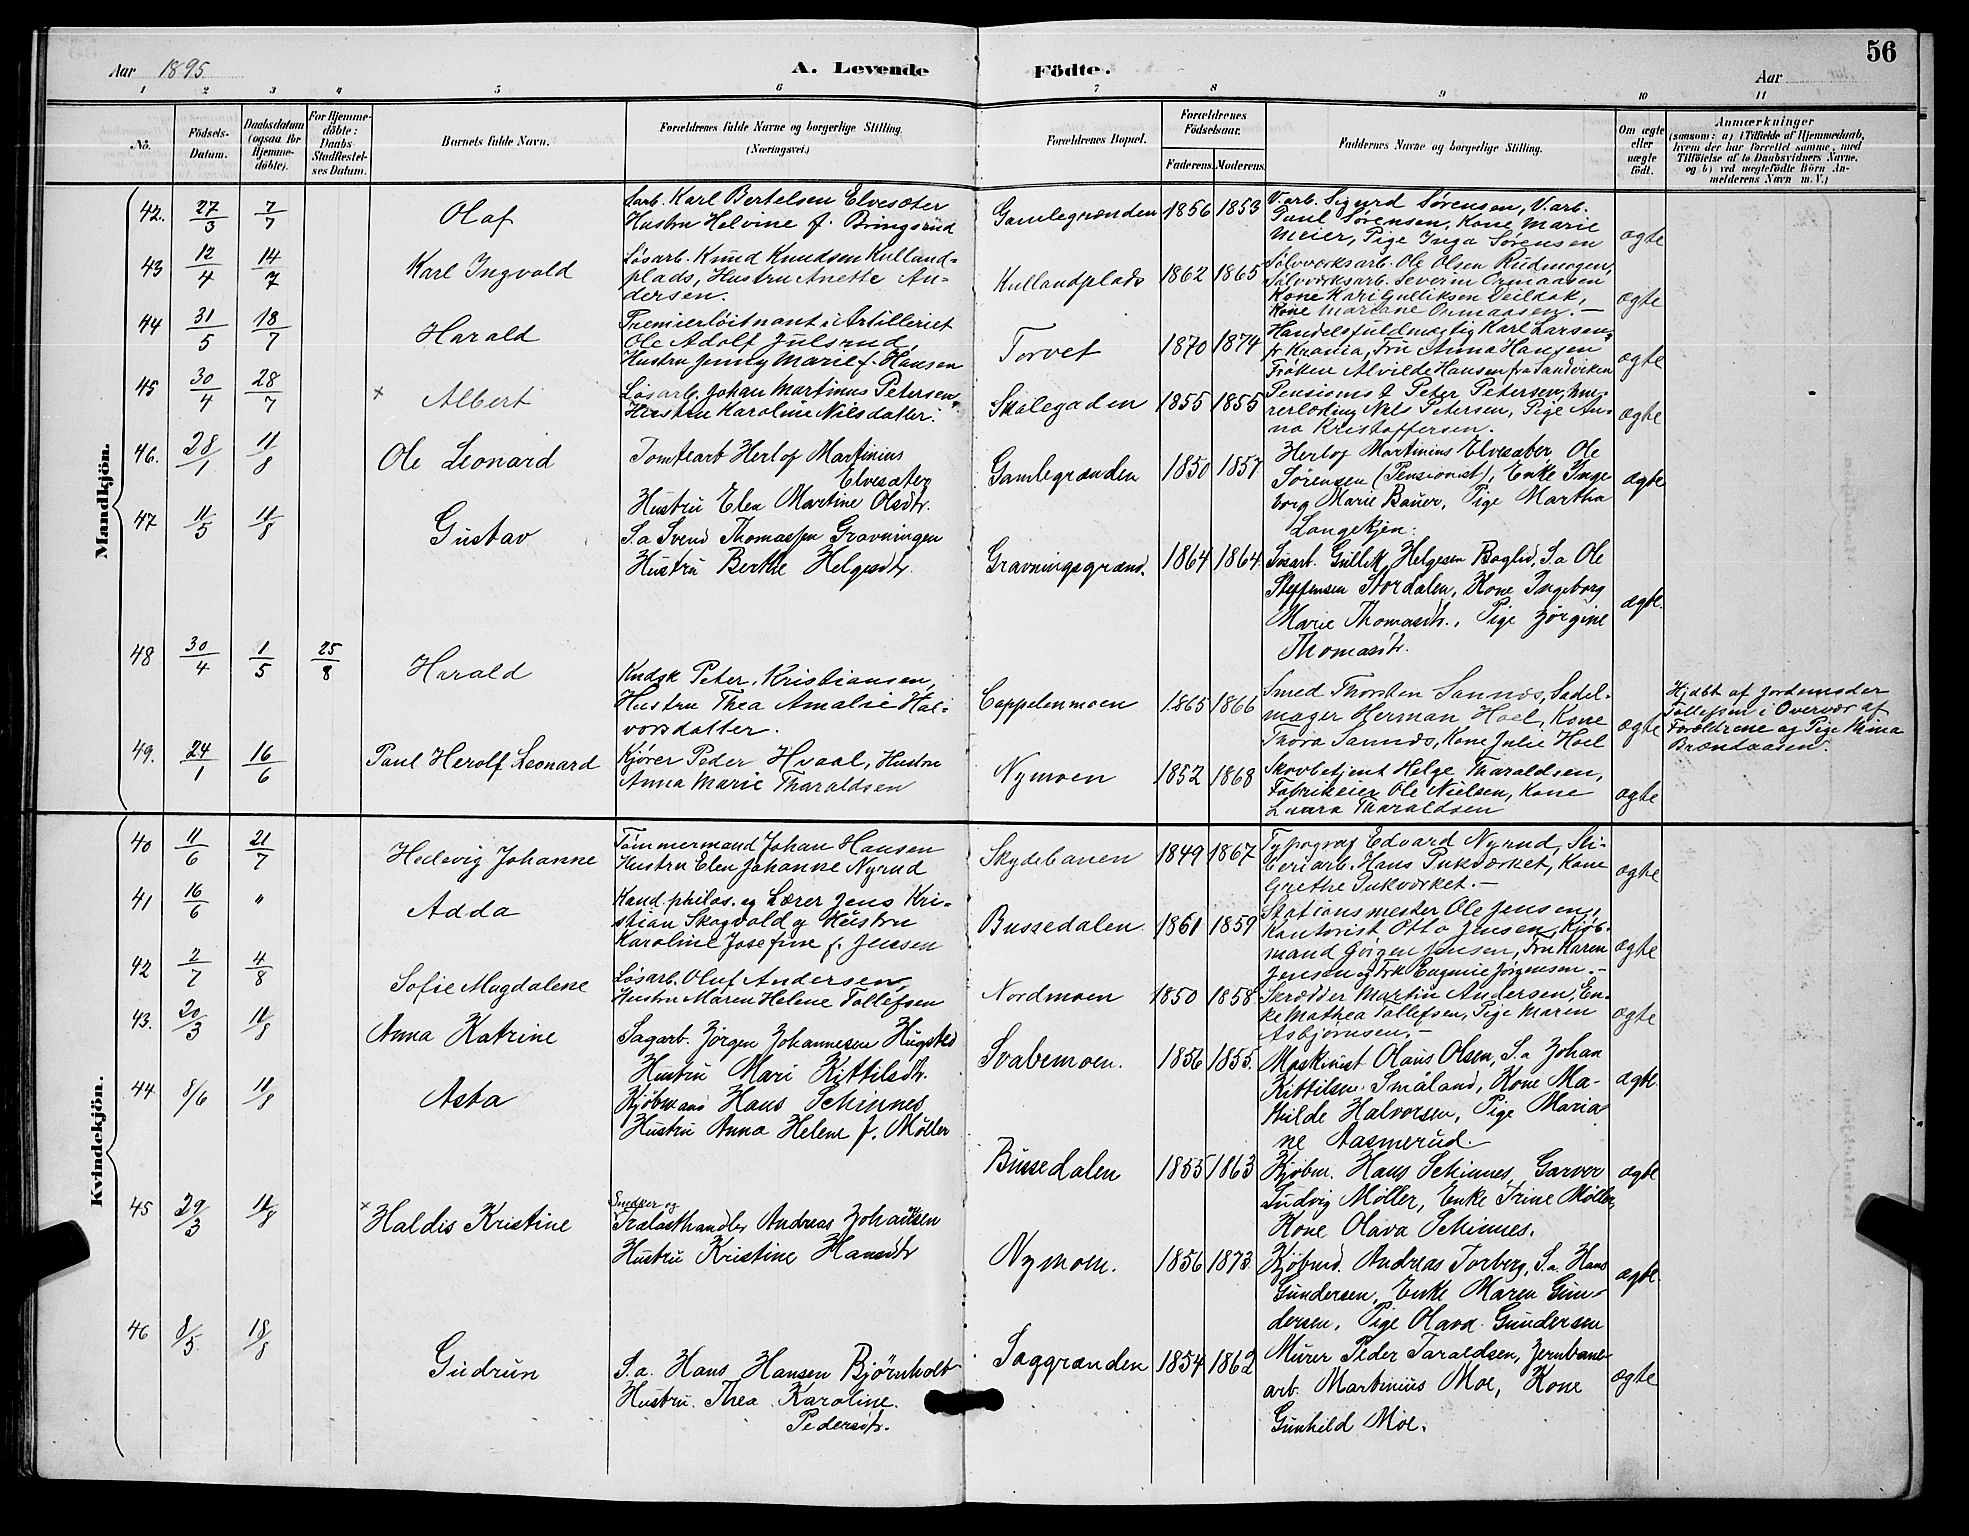 56
Aar 1895
A. Levende Födte.
Aar
1 2 3 4 5 6 7 8 9 10 11
No.
Födsels-Datum.
Daabsdatum (ogsaa for Hjemmedöbte).
For Hjemmedøbte: Daabs Stadfæstelses Datum.
Barnets fulde Navn.
Forældrenes fulde Navne og borgerlige Stilling. (Næringsvei.)
Forældrenes Bopæl.
Forældrenes Födselsaar.
Faderens. Moderens.
Faddernes Navne og borgerlige Stilling.
Om ægte eller uægte født.
Anmærkninger
(saasom: a) i Tilfælde af Hjemmedaab,
hvem der har forrettet samme, med
Tilföielse af to Daabsvidners Navne,
og b) ved uægtefödte Börn Anmelderens Navn m. V.)
Mandkjön.
42. 27/3 7/7 Olaf
Sarb. Karl Bertelsen Elvesæter
Hustru Helvine f. Bringsrud
Gamlegrænden 1856 1853
V.arb. Sigurd Sørensen, V.arb.
Paul Sørensen, Kone Marie
Meier, Pige Inga Sørensen
ægte
43 12/4 14/7 Karl Ingvald
Løsarb. Knud Knudsen Kulland=
plads, Hustru Anette An-
dersen.
Kullandplads 1862 1865
Sølvværksarb. Ole Olsen Rudmogen,
Sølvværksarb. Severin Ormaasen
Kone Kari Gulliksen Deildok,
Kone Mariane Ormaasen.-
ægte
44 31/5 18/7 Harald
Premierløitnant i Artilleriet
Ole Adolf Julsrud,
Hustru Jenny Marie f. Hansen
Torvet 1870 1874
Handelsfuldmægtig Karl Larsen
fr Krania, Fru Anna Hansen
Frøken Alvilde Hansen fra Sandviken
ægte
45 30/4 28/7 × Albert
Løsarb. Johan Martinus Petersen,
Hustru Karoline Nilsdatter.
Skolegaden 1855 1855
Pensions. Peter Petersen, Mu-
rerlærling Nils Petersen, Pige An-
na Kristoffersen.
ægte
46. 28/1 11/8 Ole Leonard
Tomtearb Herlof Martinius
Elvesæter
Hustru Elen Martine Olsdtr.
Gamlegrænden 1850 1857
Herlof Martinius Elvesæter, Ole
Sørensen (Pensionist), Enke Inge
borg Marie Bauer, Pige Martha
Langekjen.
ægte
47 11/5 11/8 Gustav
S.a Svend Thomassen Gravningen
Hustru Berthe Helgesdtr.
Gravningsgrænd. 1864 1864
Søsarb. Gullik Helgesen Baglid, S.a Ole
Steffensen Stordalen, Kone Ingeborg
Marie Thomasdtr., Pige Jørgine
Thomasdtr.
ægte.
48 30/4 1/5 25/8 Harald
Kudsk Peter Kristiansen,
Hustru Thea Amalie Hal-
vorsdatter.
Cappelenmoen 1865 1866
Smed Thorsten Sannæs, Sadel-
mager Herman Hoel, Kone
Thora Sannæs, Kone Julie Hoel
ægte
Hjdbt af Jordemoder
Tollefsen i Overvær af
Forældrene og Pige Mina
Brændaasen.
49. 24/1 16/6 Paul Herolf Leonard
Kjører Peder Hvaal, Hustru
Anna Marie Tharaldsen
Nymoen 1852 1868
Skovbetjent Helge Tharaldsen,
Fabrikeier Ole Nielsen, Kone
Laura Tharaldsen
ægte
Kvindekjön.
40 11/6 21/7 Hedevig Johanne
Tømmermand Johan Hansen
Hustru Elen Johanne Nyrud
Skydebanen 1849 1867
Typograf Edvard Nyrud, Sli-
beriarb. Hans Pukværket, Kone
Grethe Pukværket.-
ægte
41 16/6 " Adda
Kand. philos. og Lærer Jens Kri-
stian Skogvold og Hustru
Karoline Josefine f. Jensen
Bussedalen 1861 1859
Stationsmester Ole Jensen,
Kontorist Otto Jensen, Kjøb-
mand Jørgen Jensen, Fru Karen
Jensen og Frk Eugenie Jørgensen.-
ægte
42 2/7 4/8 Sofie Magdalene
Løsarb. Oluf Andersen,
Hustru Maren Helene Tollefsen
Nordmoen 1850 1858
Skrædder Martin Andersen, En-
ke Mathea Tollefsen, Pige Maren
Asbjørnsen.-
ægte
43. 20/3 11/8 Anna Katrine
Sagarb. Jørgen Johannesen Hugsted
Hustru Mari Kittilsdtr.
Svabemoen. 1856 1855.
Maskinist Olaus Olsen, S.a Johan
Kittilsen Småland, Kone Ma-
thilde Halvorsen, Pige Maria
ne Aasmerud.
ægte.
44 8/6 11/8 Asta
Kjøbmand Hans Schinnes
Hustru Anna Helene f. Møller
Bussedalen 1855 1863
Kjøbm. Hans Schinnes, Garver
Ludvig Møller, Enke Trine Møller,
Kone Olava Schinnes.
ægte
45 29/3 11/8 × Haldis Kristine
Snedker og
Trælasthandler Andreas Johansen
Hustru Kristine Hansdtr
Nymoen. 1856 1873.
Kjøbmd. Andreas Torberg, S.a. Hans
Gundersen, Enke Maren Gun-
dersen, Pige Olava Gundersen
ægte.
46 8/5. 18/8 Gudrun
S.a. Hans Hansen Bjørnholt
Hustru. Thea Karoline
Pedersdtr.
Saggrænden 1854 1862
Murer Peder Taraldsen, Jernbane
arb. Martinius Moe, Kone
Gunhild Moe.
ægte